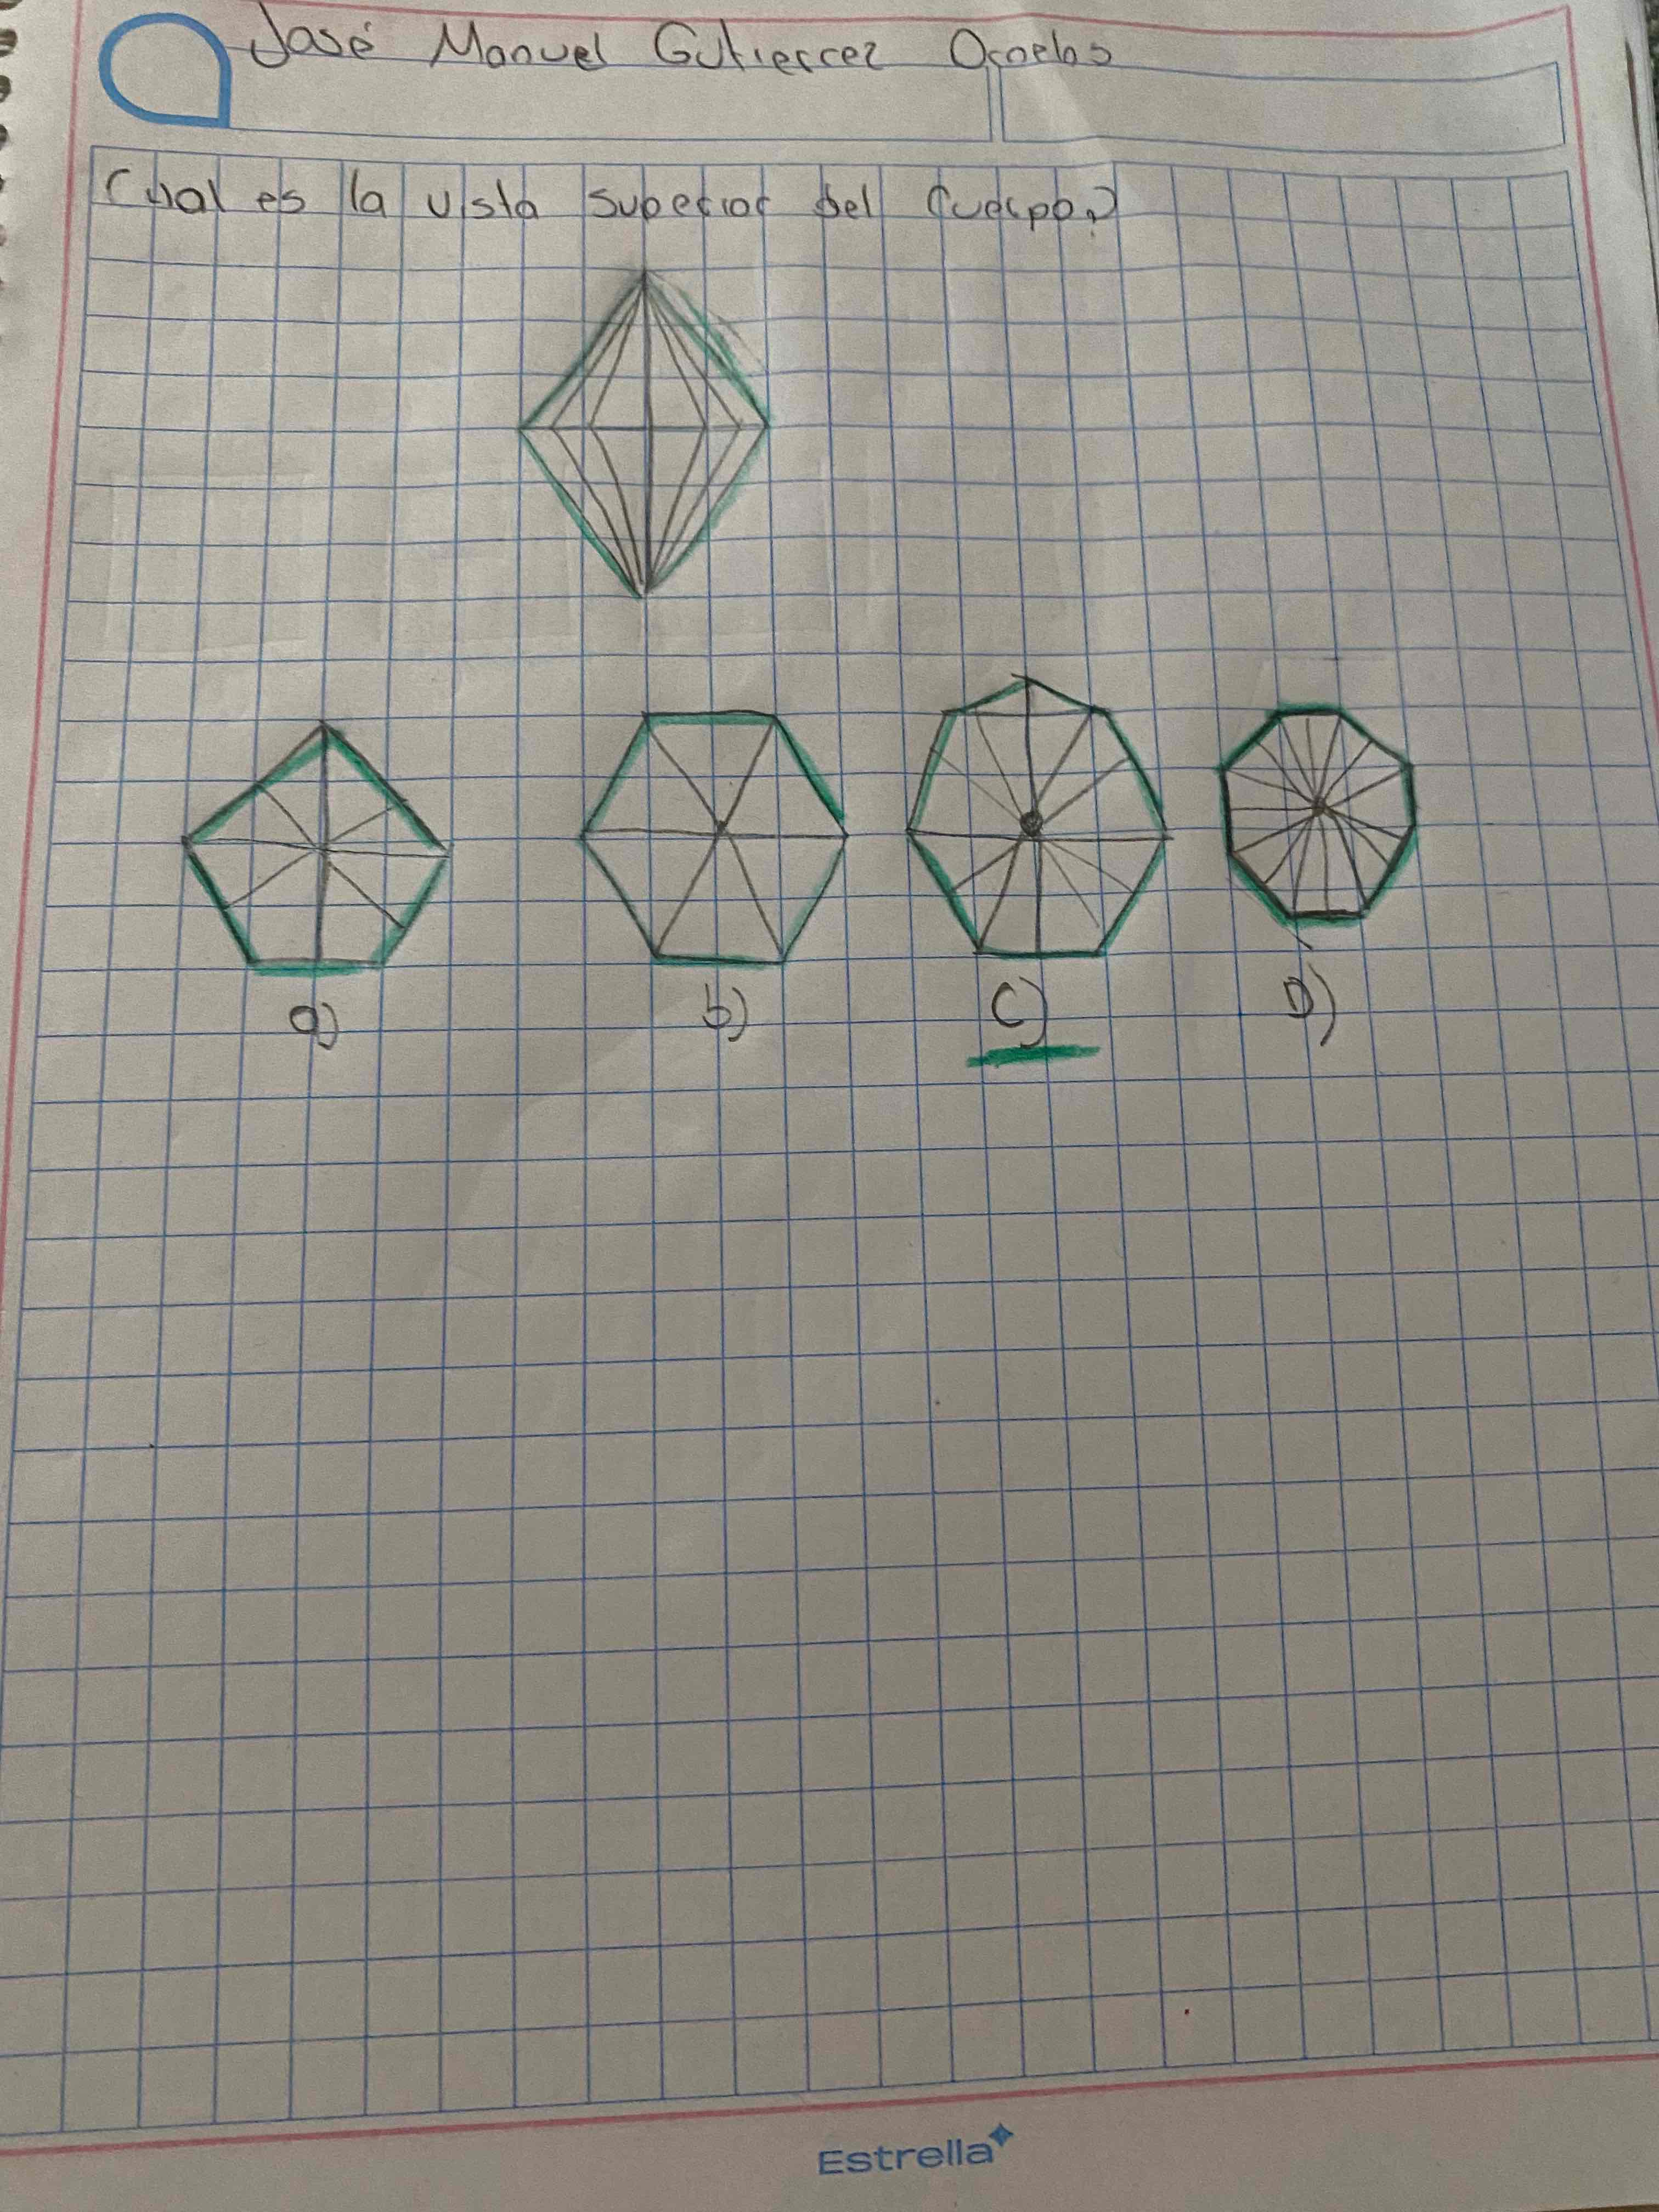 José Manuel Gutierrez Ornelas
Cual es la vista superior del Cuerpo?
a) b) c) D)
Estrella